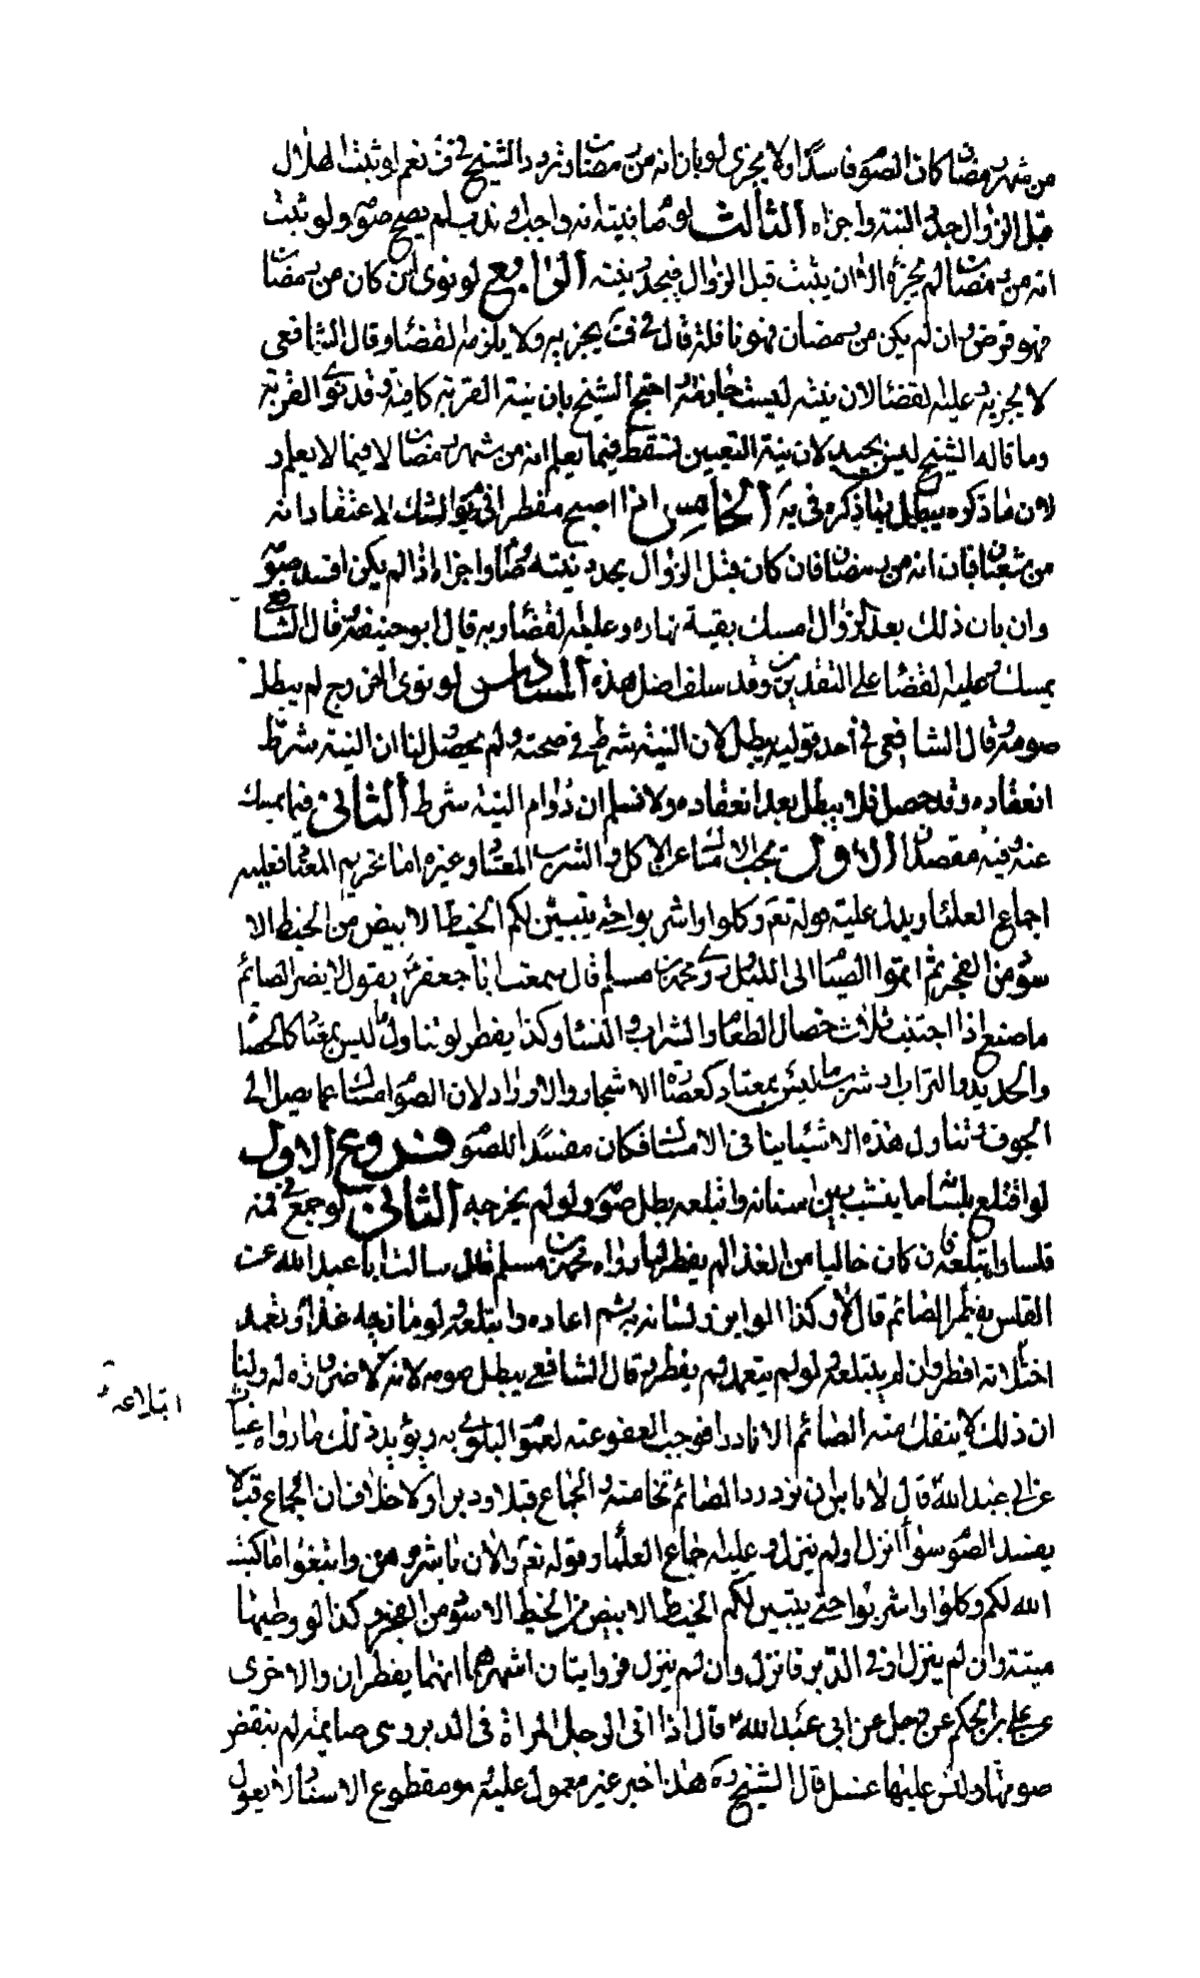 من شهر رمضان كان الصوم فاسدا ولا يجزى لو بان انه من رمضان وتردد الشيخ في ف نعم لو ثبت الهلال
قبل الزوال جدد النية واجزاه الثالث لو صام بنية انه واجب او ندب لم يصح صومه ولو ثبت
انه من رمضان لم يجزه الا ان يثبت قبل الزوال فيجدد نيته الرابع لو نوى ان كان من رمضان
فهو فرض وان لم يكن من رمضان فهو نافلة قال في ف يجزيه ولا يلزمه القضا وقال الشافعي
لا يجزيه وعليه القضا لان نيته ليست جازمة احتج الشيخ بان نية القربة كافية وقد نوى القربة
وما قاله الشيخ ليس بجيد لان نية التعيين تسقط فيما يعلم انه من شهر رمضان لا فيما لا يعلم و
لان ما ذكره يبطل بما ذكره في يه الخامس اذا اصبح مفطرا في يوم الشك لاعتقاد انه
من شعبان فبان انه من رمضان فان كان قبل الزوال يجدد نيته وصام واجزاه اذا لم يكن افسد صومه
وان بان ذلك بعد الزوال امسك بقية نهاره وعليه القضا وبه قال ابو حنيفة وقال الشافعي
يمسك وعليه القضا على التقديرين وقد سلف اصل هذه السادس لو نوى الخروج لم يبطل
صومه وقال الشافعي في أحد قوليه يبطل لان النية شرط في صحته ولم يحصل لنا ان النية شرط
انعقاده وقد حصل فلا يبطل بعد انعقاده ولا نسلم ان دوام النية شرط الثاني فيما يمسك
عنه وفيه مقصدان الاول يجب الامساك عن الاكل والشرب المعتاد وغيره اما تحريم المعتاد فعليه
اجماع العلماء ويدل عليه قوله تعم وكلوا واشربوا حتى يتبين لكم الخيط الابيض من الخيط الا
سود من الفجر ثم اتموا الصيام الى الليل وروى محمد بن مسلم قال سمعت ابا جعفر ع يقول لا يضر الصائم
ما صنع اذا اجتنب ثلاث خصال الطعام والشراب والنسا وكذا يفطر لو تناول ما ليس بمعتاد كالحصا
والحديد والتراب او شرب ما ليس بمعتاد كعصارة الاشجار والاوراد لان الصوم امساك عما يصل الى
الجوف وتناول هذه الاشيا ينافي الامساك فكان مفسدا للصوم فروع الاول
لو اقتلع بلسانه ما ينشب بين اسنانه وابتلعه بطل صومه ولو لم يخرجه الثاني لو جمع في فمه
قلسا وابتلعه فان كان خاليا من الغذا لم يفطر لما رواه محمد بن مسلم قال سالت ابا عبد الله عن
القلس يفطر الصائم قال لا وكذا لو ابرز لسانه ثم اعاده وابتلعه ولو مازجه غذا وتعمد
اختلاته افطر وان لم يبتلعه ولو لم يتعمد لم يفطر وقال الشافعي يبطل صومه لانه لا ضرورة له ولنا
ابتلاعه
ان ذلك لا ينفك منه الصائم الا نادرا فوجب العفو عنه لعموم البلوى به ويؤيد ذلك ما رواه غياث
عن ابي عبد الله قال لا باس ان يزدرد الصائم نخامته والجماع قبلا ودبرا ولا خلاف ان الجماع قبلا
يفسد الصوم سوا انزل او لم ينزل وعليه اجماع العلماء وقوله تعم والان باشروهن وابتغوا ما كتب
الله لكم وكلوا واشربوا حتى يتبين لكم الخيط الابيض من الخيط الاسود من الفجر وكذا لو وطيها
ميتة وان لم ينزل او في الدبر فانزل وان لم ينزل فروايتان اشهرهما انهما يفطران والاخرى
عن علي بن الحكم عن رجل عن ابي عبد الله قال اذا اتى الرجل المراة في الدبر وهي صايمة لم ينقض
صومها وليس عليها غسل قال الشيخ ره هذا خبر غير معمول عليه وهو مقطوع الاسناد لا يعول